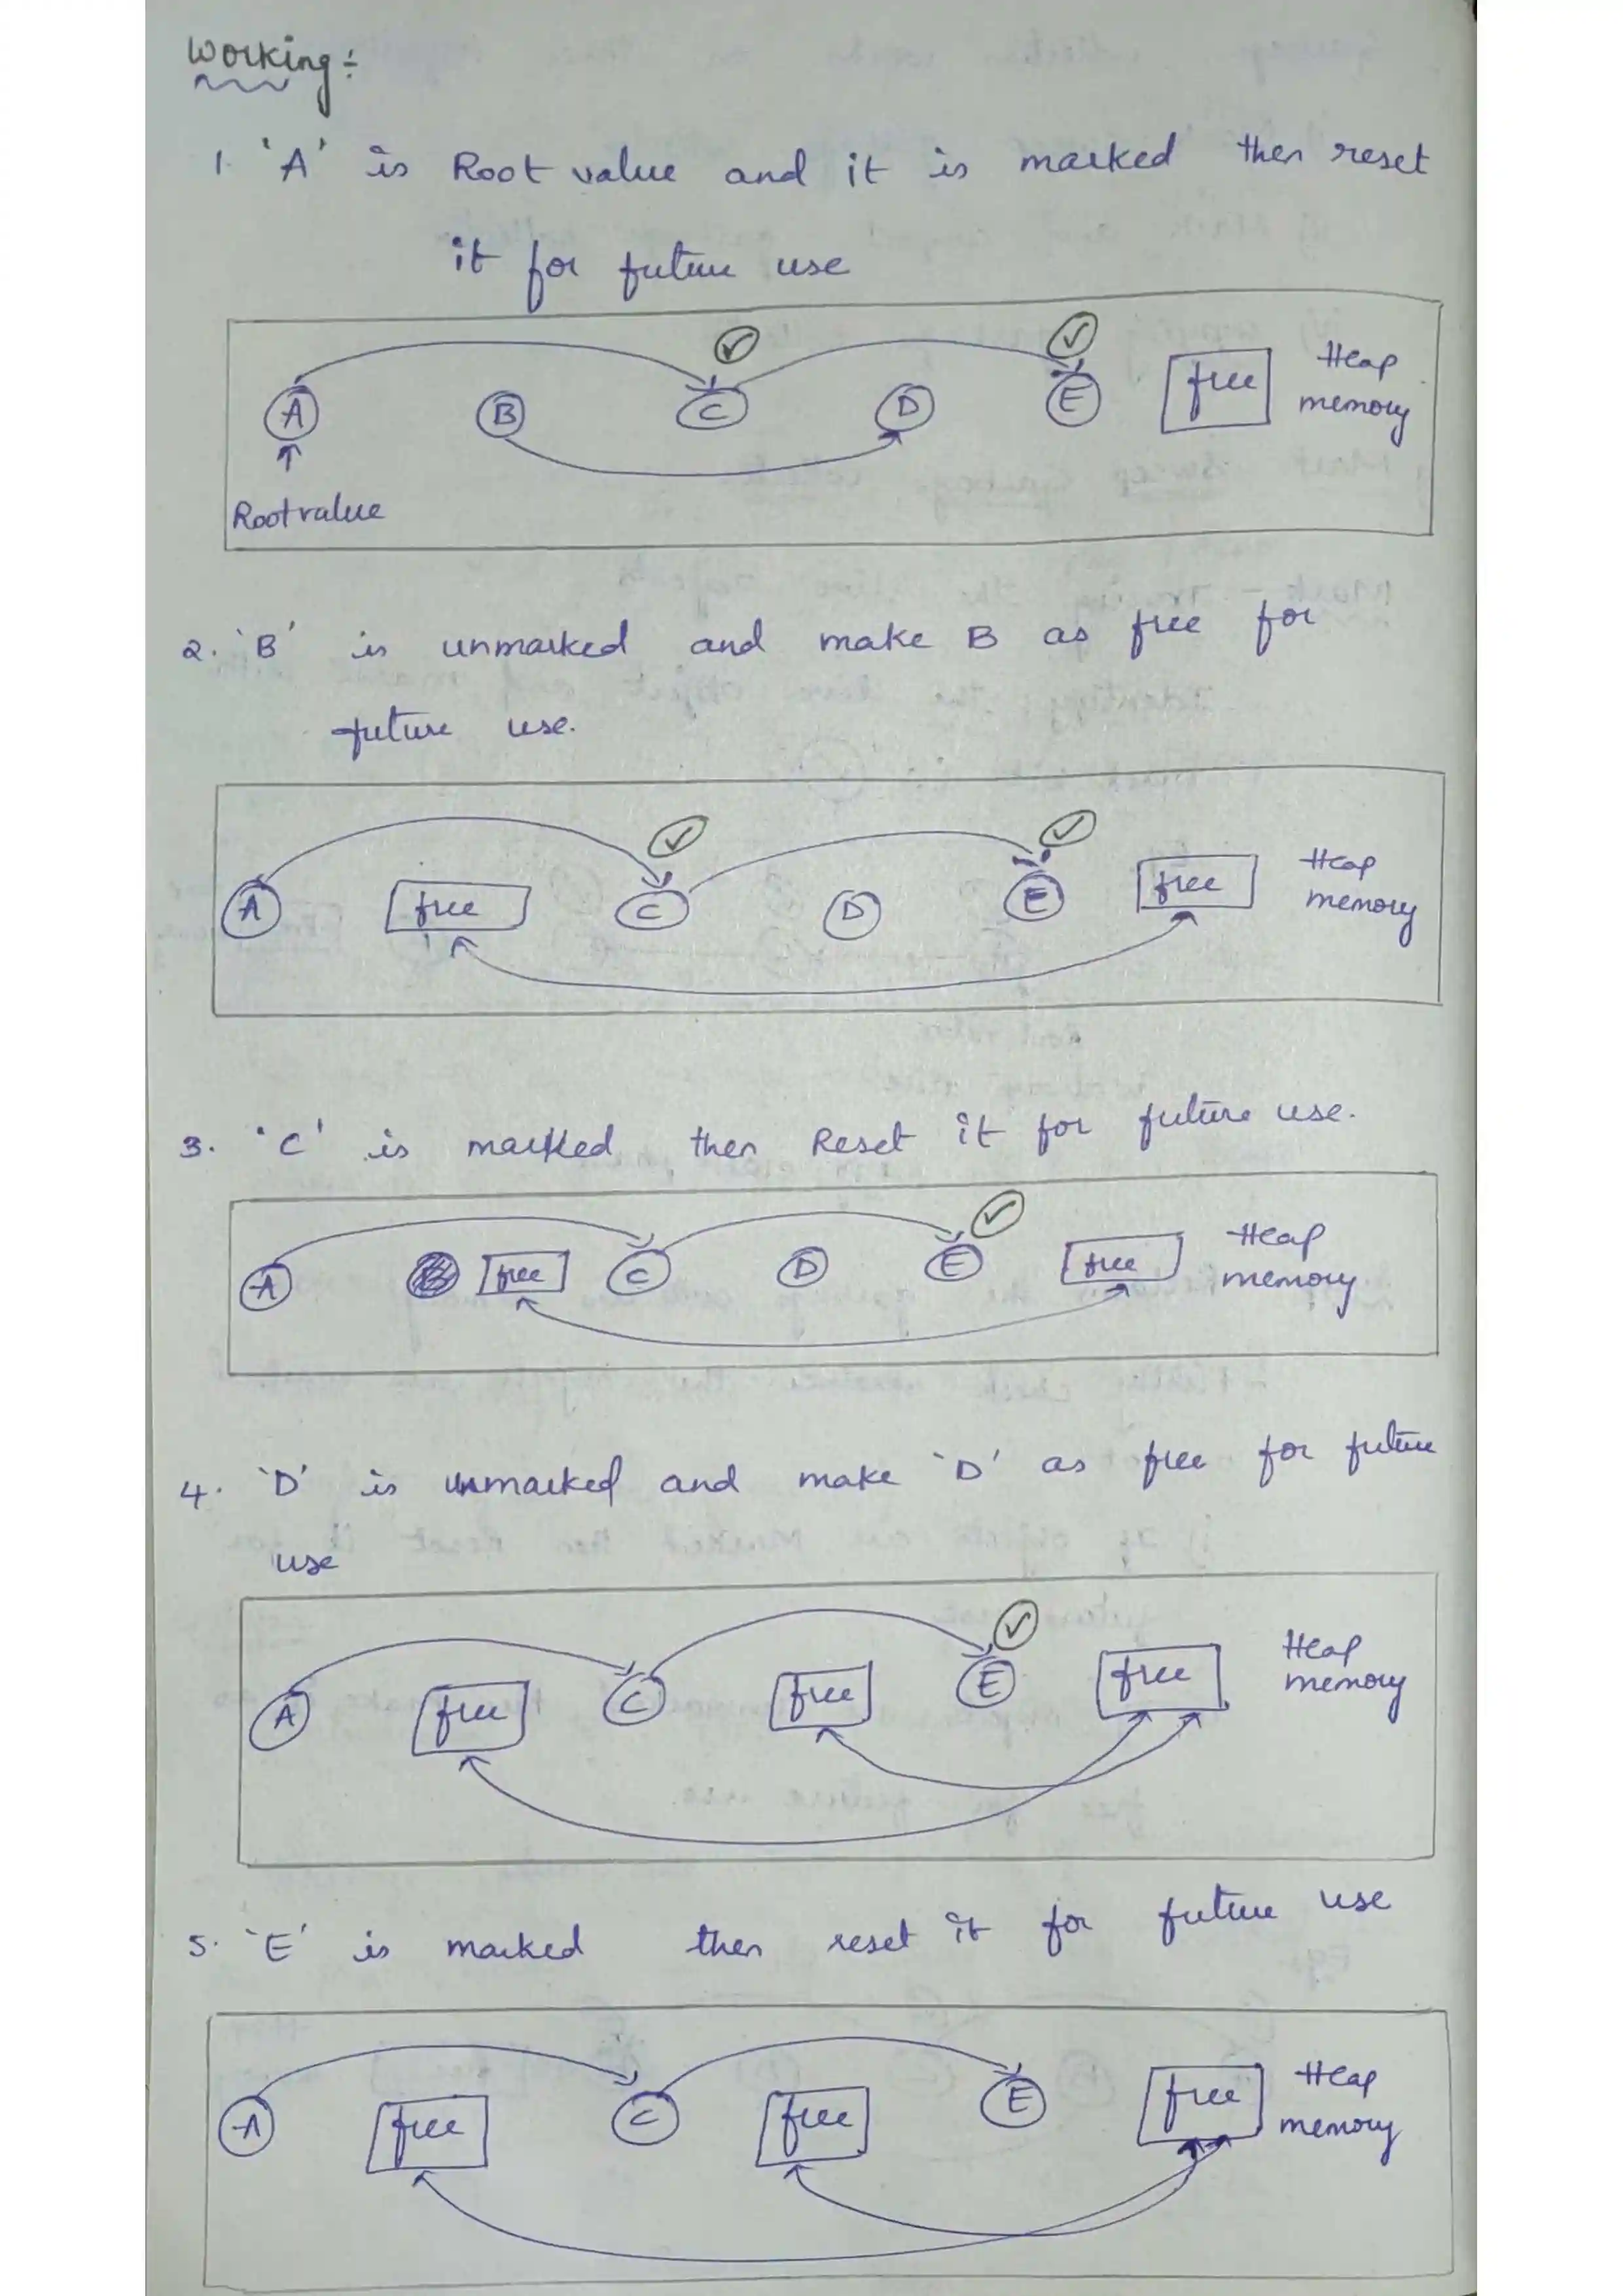 Working :-
1. 'A' is Root value and it is marked then reset
it for future use
A B C D E free Heap
memory
Root value
2. 'B' is unmarked and make B as free for
future use.
A free C D E free Heap
memory
3. 'C' is marked then Reset it for future use.
A free C D E free Heap
memory
4. 'D' is unmarked and make 'D' as free for future
use
A free C free E free Heap
memory
5. 'E' is marked then reset it for future use
A free C free E free Heap
memory